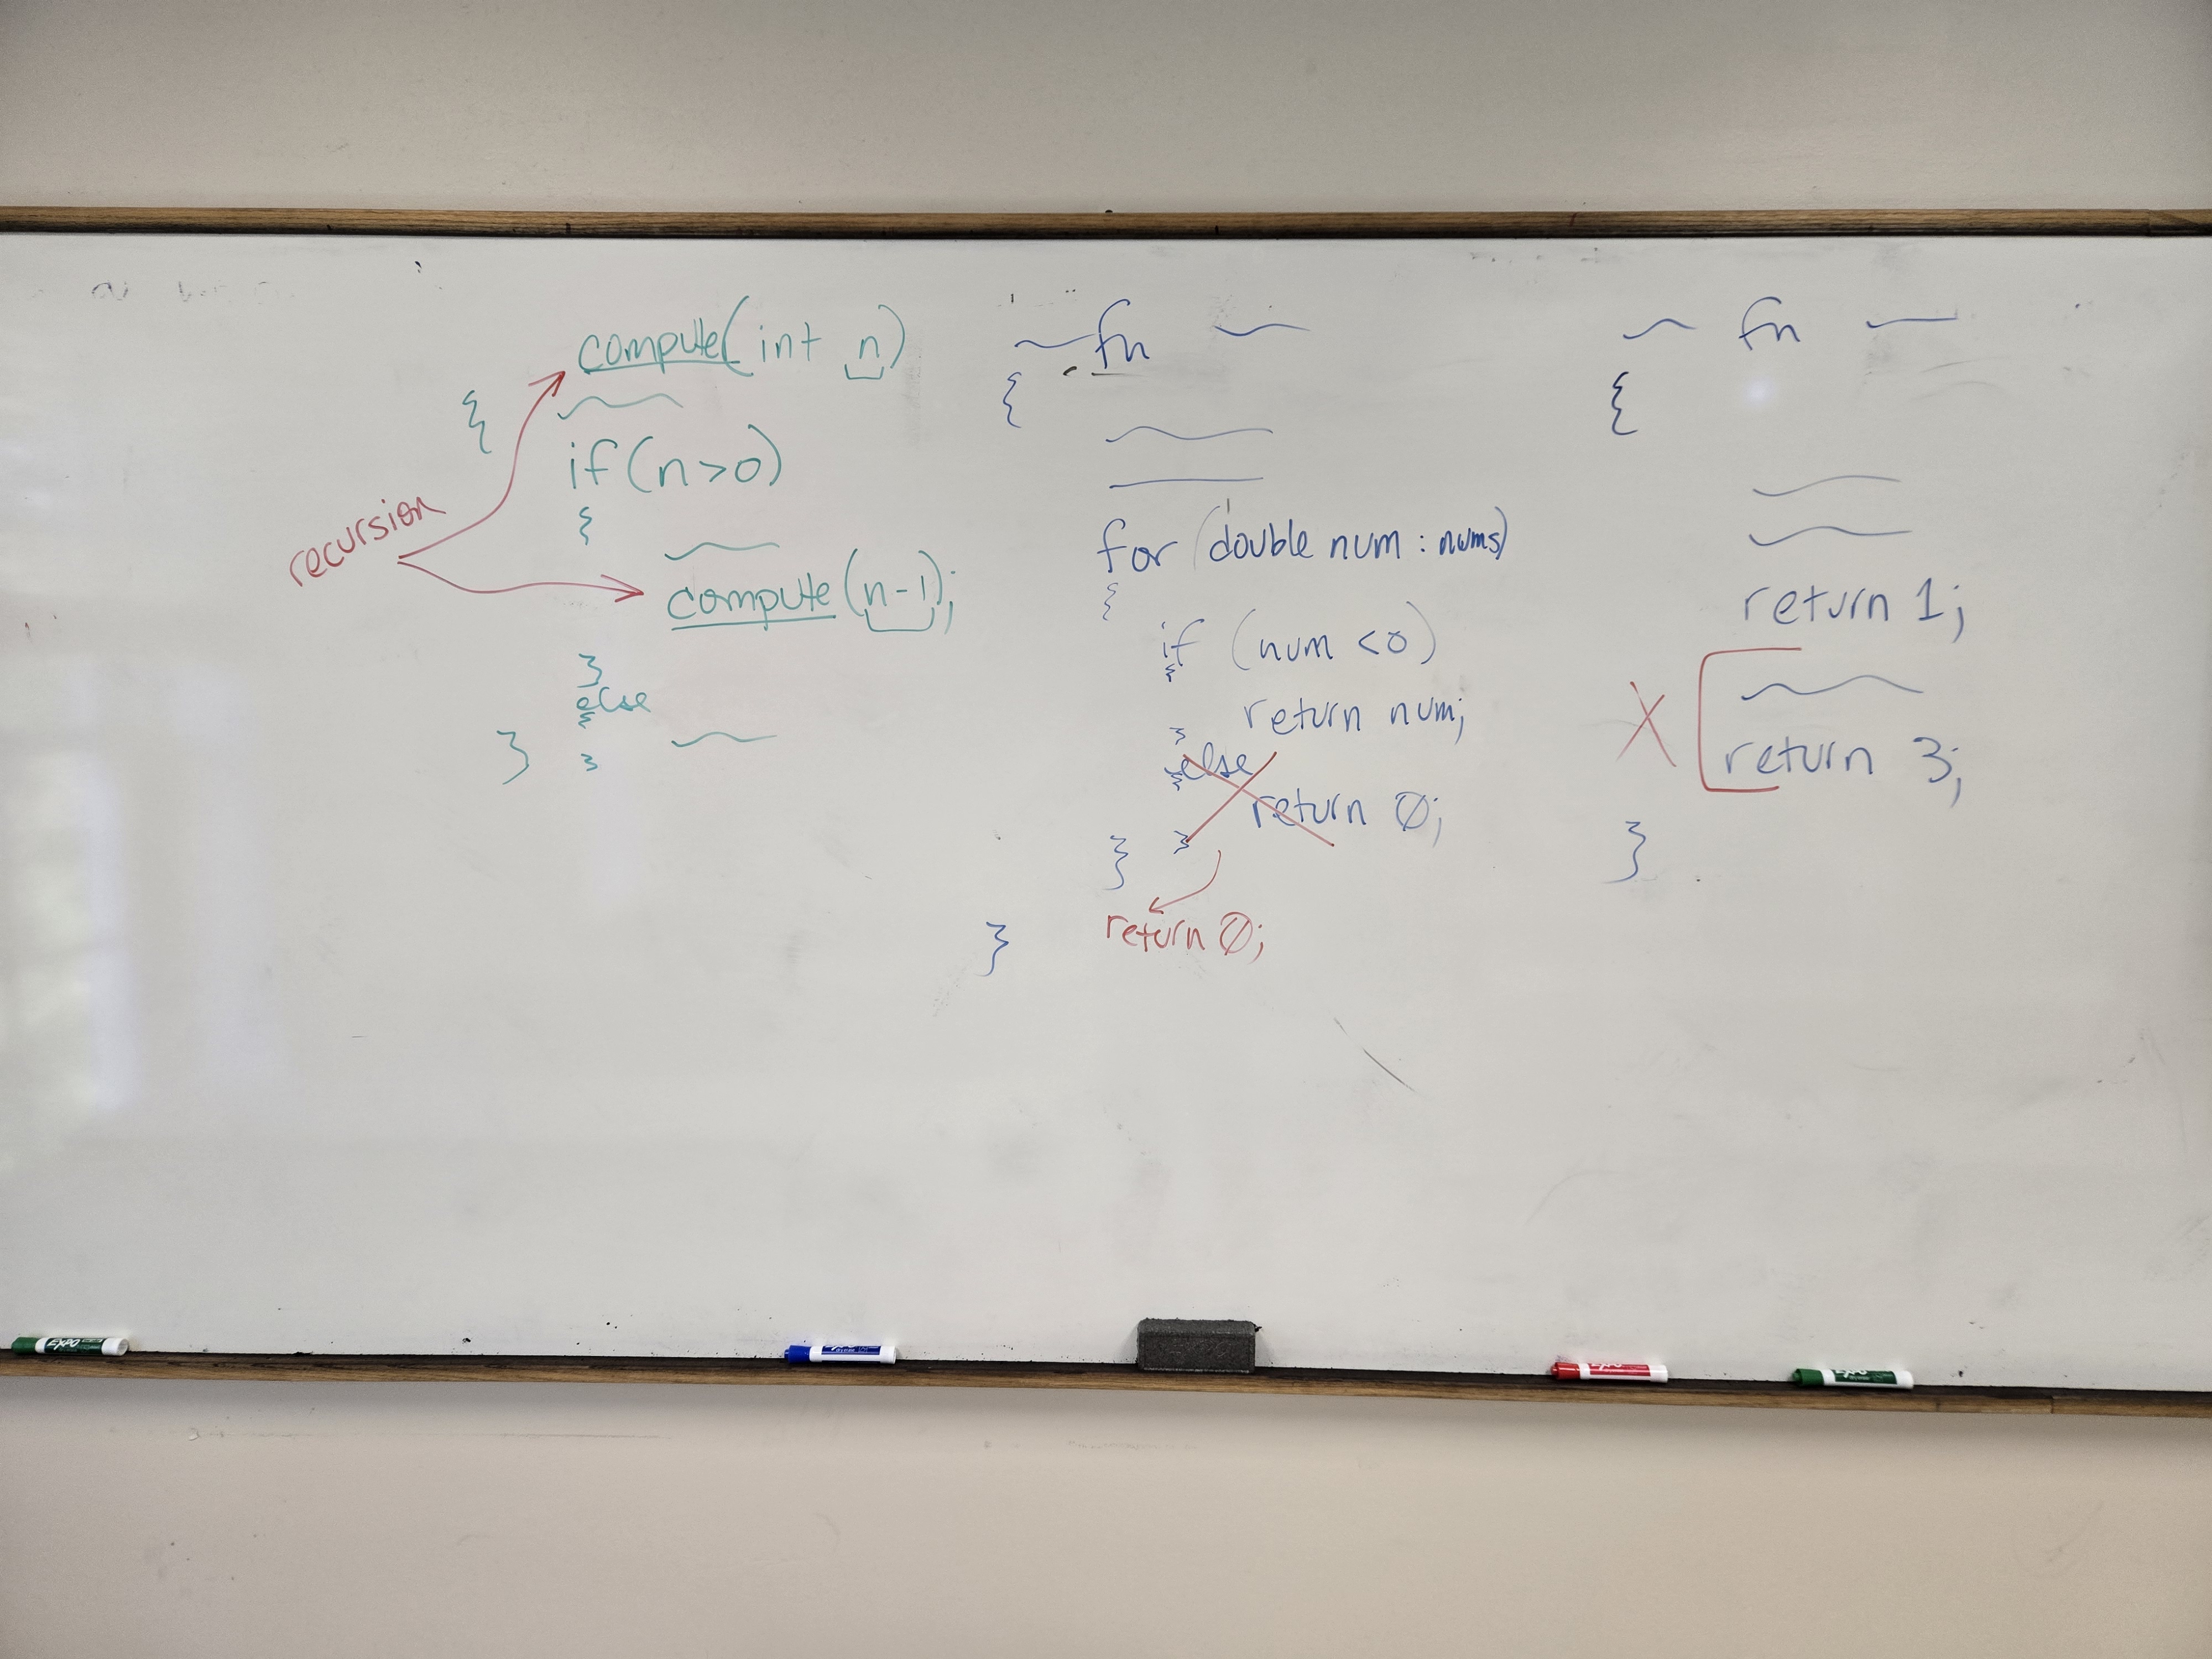 compute(int n)
{
if(n>0)
{
recursion
compute(n-1);
}
else
{
}
}
fn
{
for (double num : nums)
{
if (num <0)
{
return num;
}
else
{
return 0;
}
}
return 0;
}
fn
{
return 1;
X
return 3;
}
EXPO
EXPO
EXPO